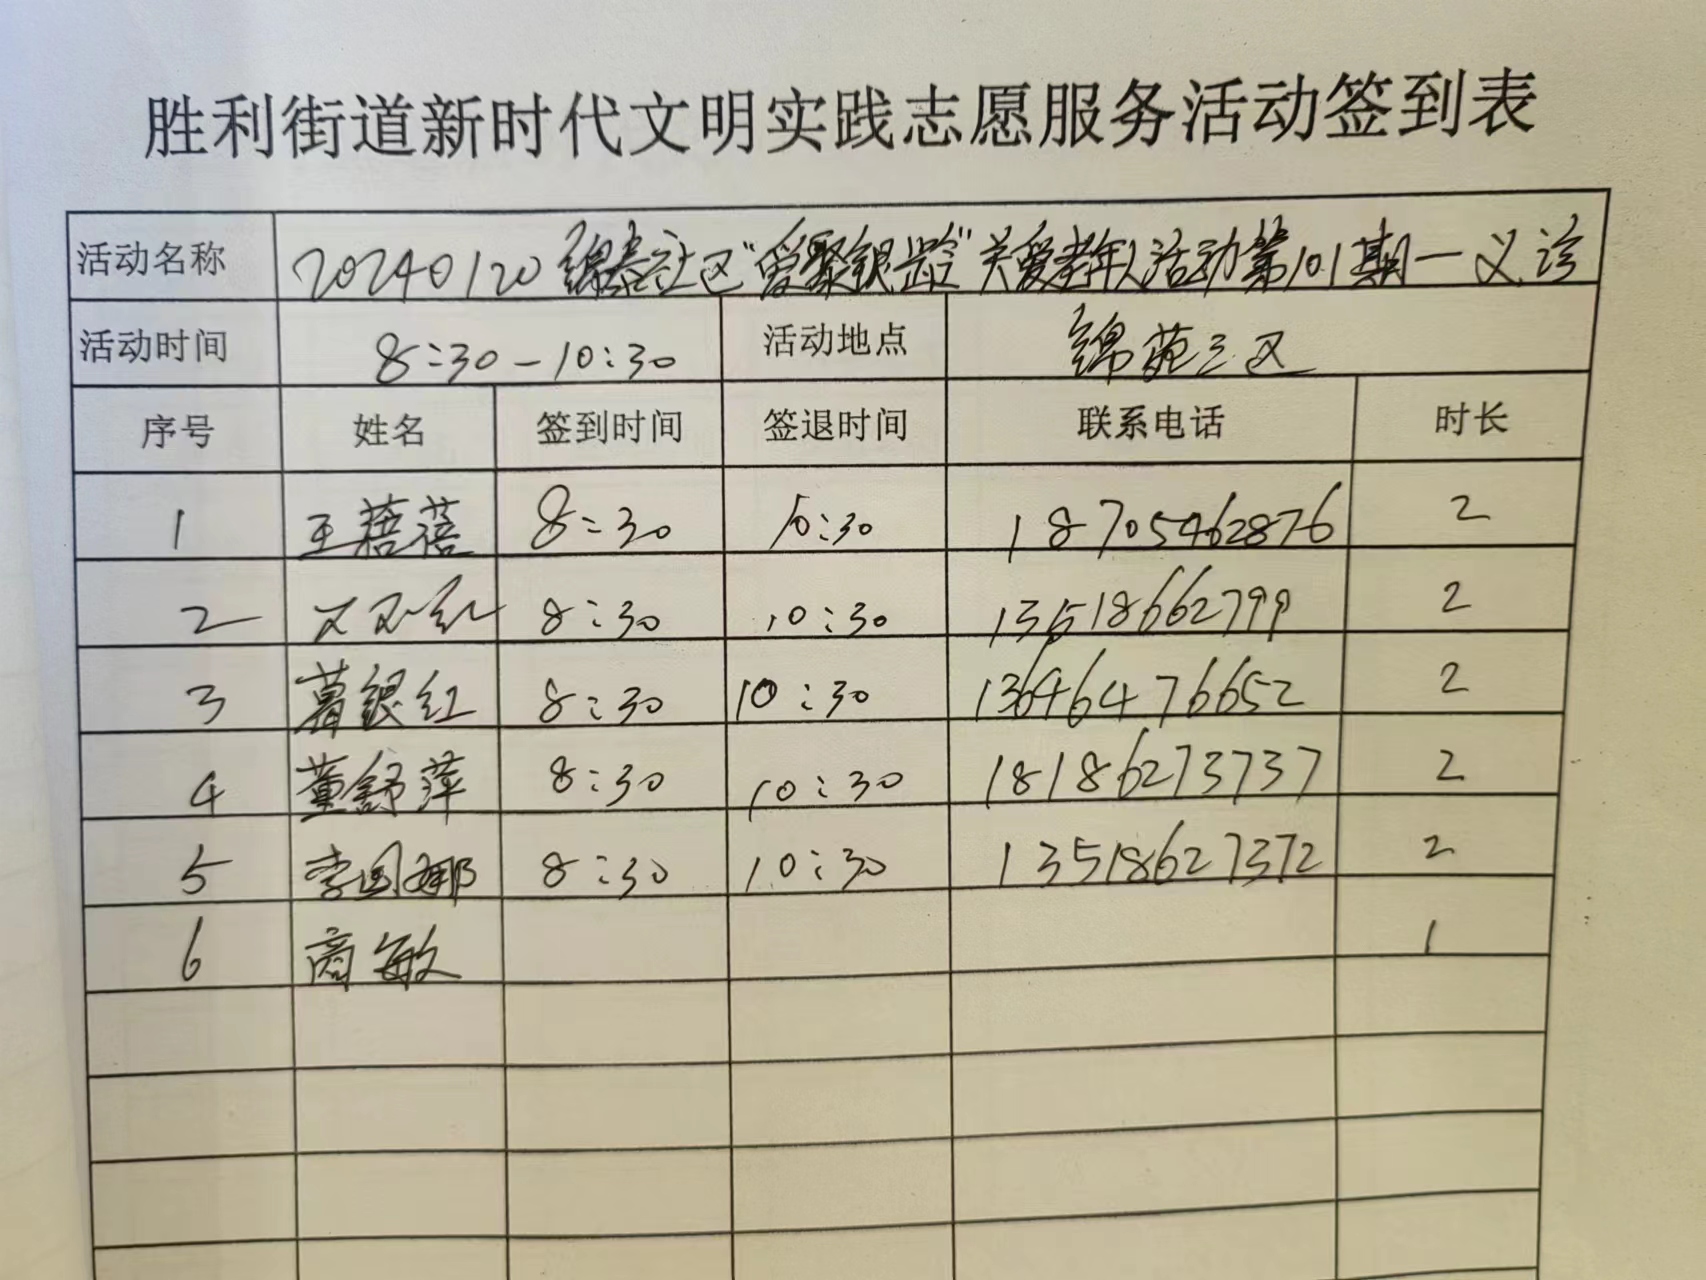 胜利街道新时代文明实践志愿服务活动签到表
活动名称 20240120锦泰社区“爱聚银龄”关爱老年人活动第101期—义诊
活动时间 8:30-10:30 活动地点 锦苑三区
序号 姓名 签到时间 签退时间 联系电话 时长
1 王蓓蓓 8:30 10:30 18705462876 2
2 8:30 10:30 13518662799 2
3 葛银红 8:30 10:30 13646476652 2
4 董舒萍 8:30 10:30 18186273737 2
5 李国娜 8:30 10:30 13518627372 2
6 商敏 1